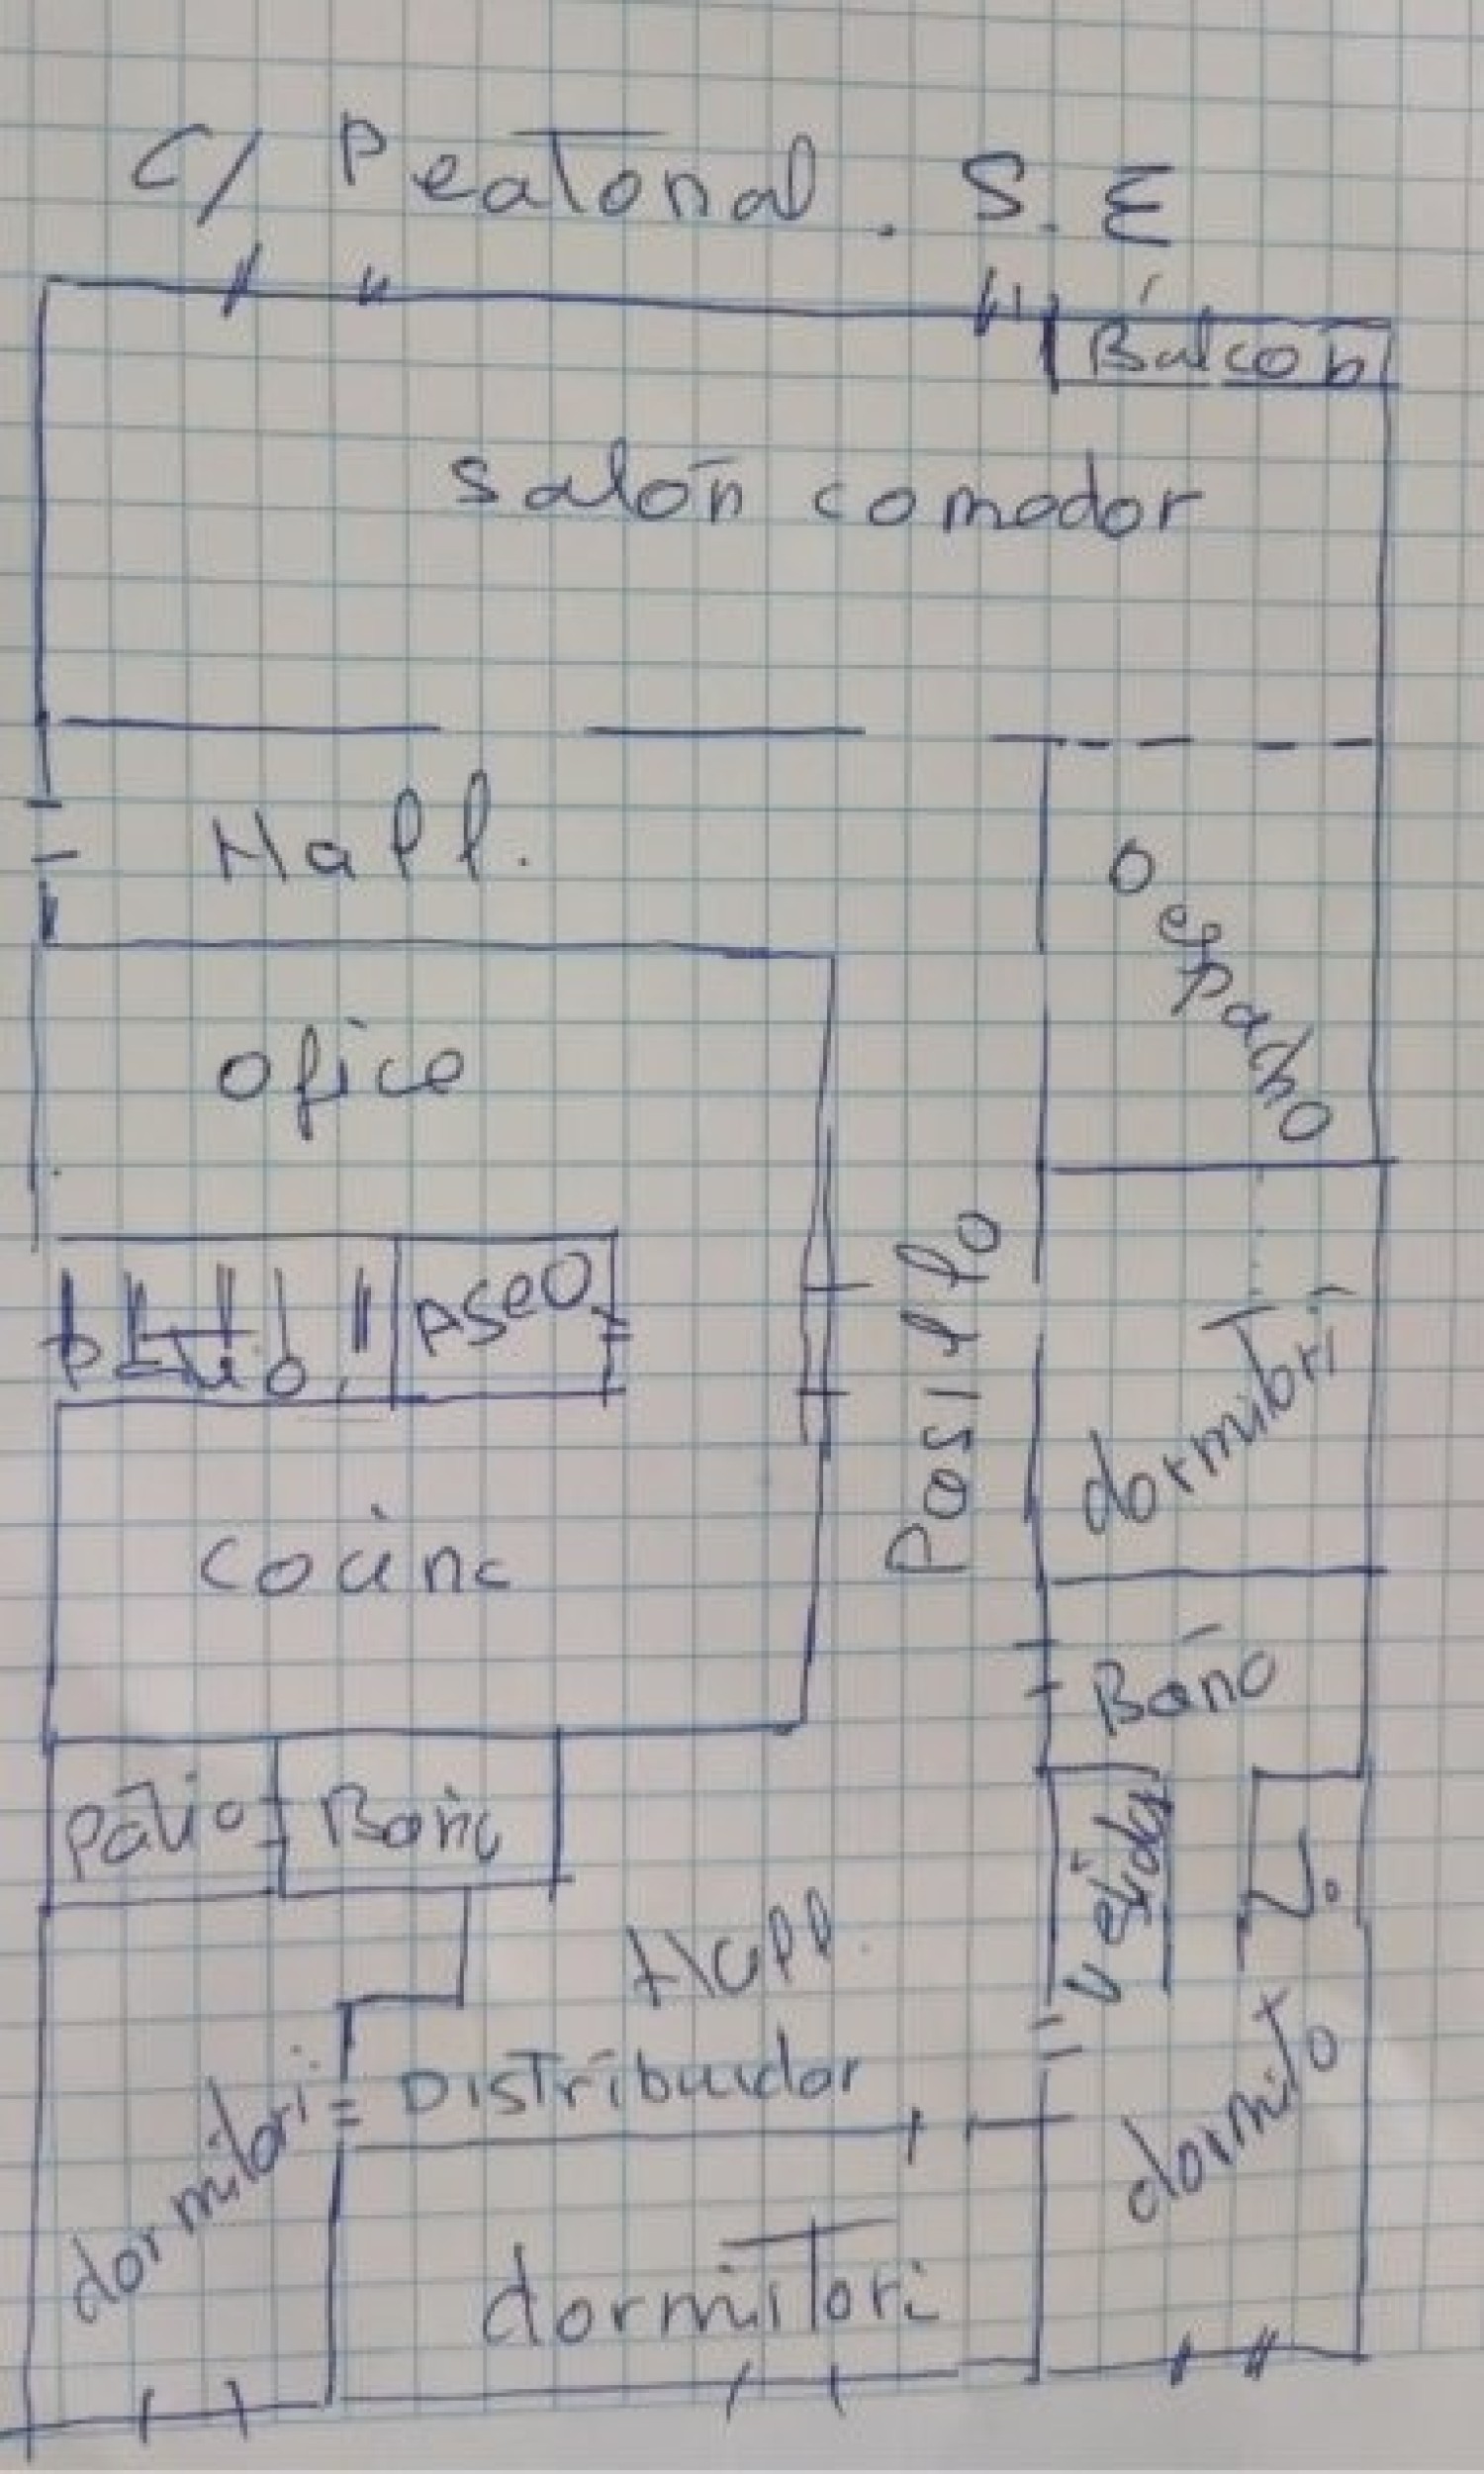 C/ Peatonal. S.E
Balcon
salón comedor
Hall.
Despacho
ofice
Patio
ASeO
Pasillo
dormitori
cocina
Baño
Patio
Baño
Vestidor
V.
Hall
Distribuidor
dormitori
dormito
dormitori